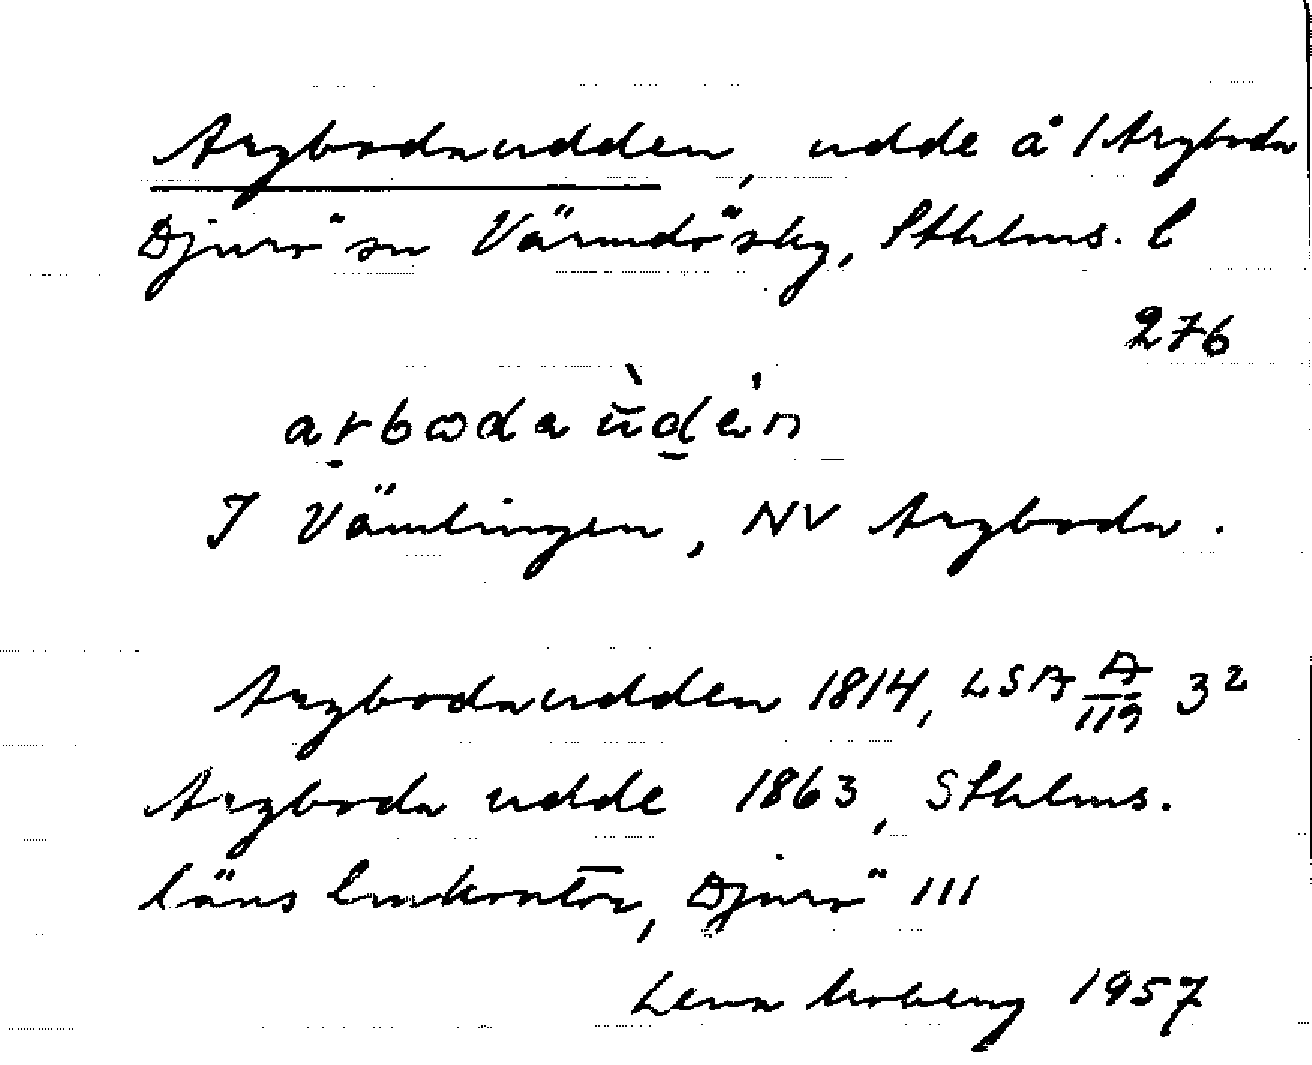 Arybodaudden, udde å / Aryboda
Djurö sn Värmdö sky, Sthlms. l
276
arbodaùdén
I Vämlingen, NV Aryboda.
Arybodaudden 1814, LSA A/119 3²
Aryboda udde 1863, Sthlms.
läns lmkontor, Djurö 111
Lena Moberg 1957